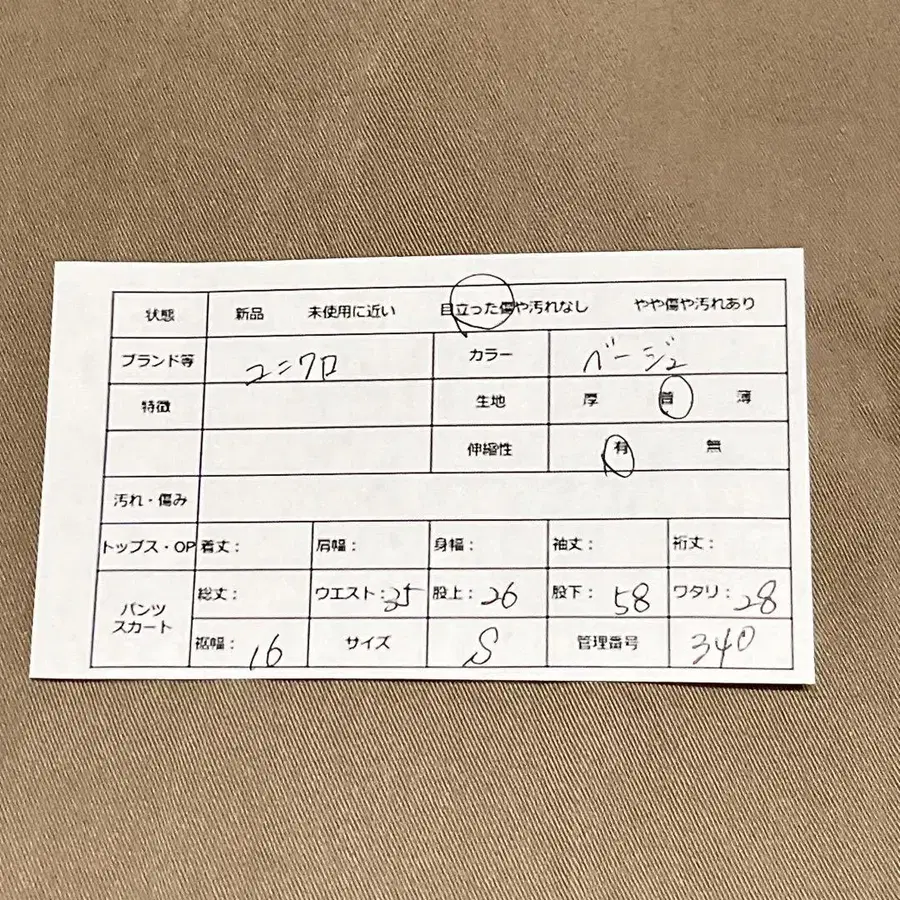 状態 新品 未使用に近い 目立った傷や汚れなし やや傷や汚れあり
ブランド等 ユニクロ カラー ベージュ
特徴 生地 厚 普 薄
伸縮性 有 無
汚れ・傷み
トップス・OP 着丈: 肩幅: 身幅: 袖丈: 裄丈:
パンツ スカート 総丈: ウエスト:35 股上:26 股下:58 ワタリ:28
裾幅:16 サイズ S 管理番号 340